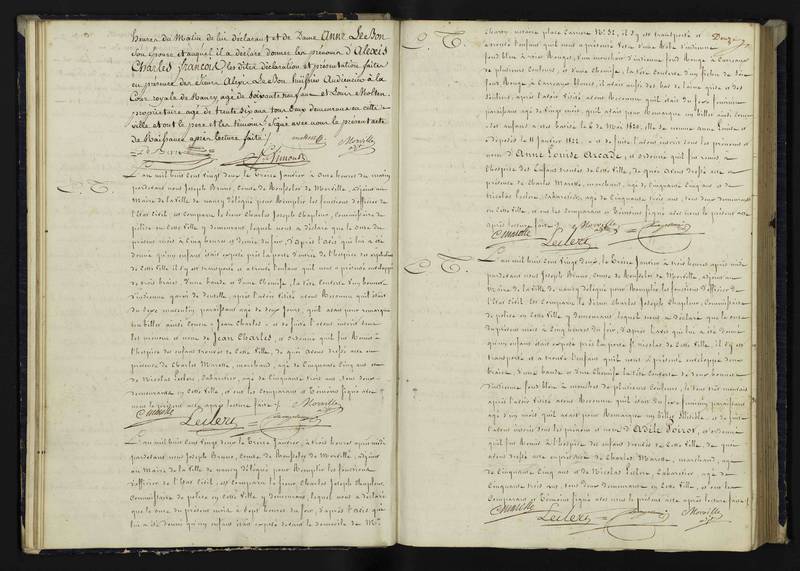 heures du Matin de lui déclarant et de Dame Anne Le Bon
Son Epouse et auquel il a déclaré donner les prénoms d'Alexis
Charles François, les dites déclaration et présentation faites
en présence des Sieurs Alexis Le Bon huissier Audiencier à la
Cour royale de Nancy âgé de soixante neuf ans et Louis Molten
propriétaire âgé de trente six ans tous deux demeurans en cette
ville et ont le père et les témoins signé avec nous le présent acte
de Naissance après lecture faite.
Morville
E. T.
L'an mil huit cent vingt deux le Treize Janvier à onze heures du matin
pardevant nous Joseph Bruno, Comte de Morville, adjoint au
Maire de la Ville de Nancy délégué pour Remplir les fonctions d'officier
de l'Etat Civil, est comparu le Sieur Charles Joseph Chapleur, Commissaire de
police en cette Ville y demeurant, lequel nous a déclaré que le onze du
présent mois à Cinq heures et demie du soir, d'après l'avis qui lui a été
donné qu'un enfant était exposé près la porte d'entrée de l'hospice des orphelins
de cette Ville il s'y est transporté et a trouvé l'enfant qu'il nous a présenté enveloppé
de trois braies, d'une bande et d'une Chemise, la tête couverte d'un bonnet
d'indienne garni de dentelle, après l'avoir visité avons Reconnu qu'il était
du Sexe masculin, paraissant âgé de deux jours, qu'il avait pour remarque
un billet ainsi conçu: Jean Charles, et de suite l'avons inscrit sous
les prénoms et nom de Jean Charles, et ordonné qu'il fut Remis à
l'hospice des enfants trouvés de Cette Ville, de quoi Avons dressé acte en
présence de Charles Marotte, marchand, âgé de Cinquante Cinq ans et
de Nicolas Leclerc, Cabaretier, âgé de Cinquante trois ans, tous deux
demeurans en cette Ville, et ont les Comparant et Témoins Signé avec
nous le présent acte après lecture faite.
C marotte Leclerc Morville
L'an mil huit cent vingt deux le Treize Janvier, à trois heures après midi
pardevant nous Joseph Bruno, Comte de Morville, adjoint
au Maire de la Ville de Nancy délégué pour Remplir les fonctions
d'officier de l'Etat Civil, est comparu le Sieur Charles Joseph Chapleur,
Commissaire de police en cette Ville y demeurant, lequel nous a déclaré
que le onze du présent mois à Sept heures du soir, d'après l'avis qui
lui a été donné qu'un enfant était exposé devant le domicile de Mr.
Douze
E. T.
notaire place Carrière No. 31, il s'y est transporté et
a trouvé l'enfant qu'il nous a présenté Vêtu d'une Robe d'indienne
fond bleu à raies Rouges, d'un mouchoir d'indienne fond Rouge à Carreaux
de plusieurs Couleurs, et d'une Chemise, la tête couverte d'un fichu de Soie
fond Rouge à Carreaux blancs, il avait aussi des bas de laine grise et des
Souliers, après l'avoir visité avons Reconnu qu'il était du Sexe féminin
paraissant âgé de Vingt mois, qu'il avait pour Remarque un billet ainsi conçu:
cet enfant a été batisé le 6 de Mai 1820, elle se nomme Anne Louise et
déposée le 11 Janvier 1822, et de suite l'avons inscrit sous les prénoms et
nom d'Anne Louise Arcade, et ordonné qu'il fut remis à
l'hospice des Enfans trouvés de Cette Ville, de quoi Avons dressé acte en
présence de Charles Marotte, marchand, âgé de Cinquante Cinq ans et
Nicolas Leclerc, Cabaretier, âgé de Cinquante trois ans, tous deux demeurans
en cette Ville, et ont les Comparant et Témoins Signé avec nous le présent acte
après lecture faite.
C marotte Leclerc Morville
E. T.
L'an mil huit cent vingt deux, le Treize Janvier à trois heures après midi
pardevant nous Joseph Bruno, Comte de Morville, adjoint au
Maire de la Ville de Nancy délégué pour Remplir les fonctions d'officier de
l'Etat Civil est Comparu le Sieur Charles Joseph Chapleur, Commissaire
de police en cette Ville y demeurant, lequel nous a déclaré que le onze
du présent mois à Cinq heures du soir, d'après l'avis qui lui a été donné
qu'un enfant était exposé près la porte St. Nicolas de Cette Ville, il s'y est
transporté et a trouvé l'enfant qu'il nous a présenté enveloppé d'une
braie, d'une bande et d'une Chemise la tête couverte de deux bonnets
d'indienne fond bleu à rayures de plusieurs Couleurs, le tout très mauvais
après l'avoir visité avons Reconnu qu'il était du Sexe féminin paraissant
âgé d'un mois, qu'il avait pour Remarque un billet illisible, et de suite
l'avons inscrit sous les prénoms et nom d'Adèle Poirot, et ordonné
qu'il fut Remis à l'hospice des enfans trouvés de Cette Ville, de quoi
avons dressé acte en présence de Charles Marotte, marchand, âgé
de Cinquante Cinq ans et de Nicolas Leclerc, Cabaretier, âgé de
Cinquante trois ans, tous deux demeurans en cette Ville, et ont les
Comparant et Témoins Signé avec nous le présent acte après lecture faite.
C marotte Leclerc Morville